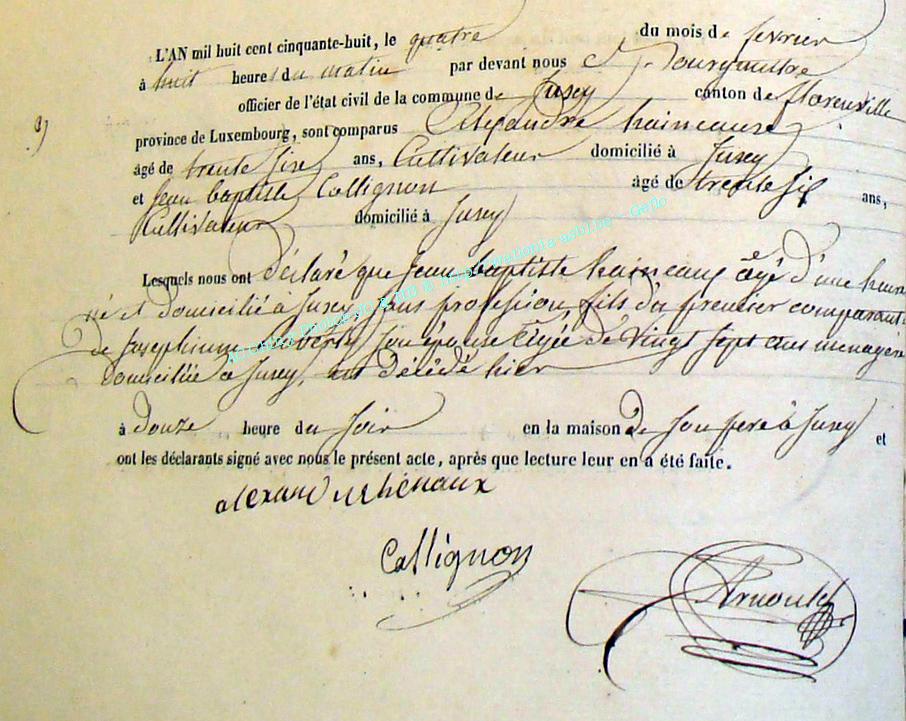 L'AN mil huit cent cinquante-huit, le quatre du mois de fevrier
à huit heures du matin par devant nous
officier de l'état civil de la commune de Jusey canton de florenville
3)
province de Luxembourg, sont comparus Alexandre haineaux
âgé de trente six ans, Cultivateur domicilié à Jusey
et Jean baptiste Collignon âgé de trente six ans,
Cultivateur domicilié à Jusey
Lesquels nous ont déclaré que Jean baptiste haineaux âgé d'une heure
né et domicilié à Jusey, sans profession, fils du premier comparant
de Josephinne son épouse âgée de vingt sept ans menagère
domiciliée à Jusey, est décédé hier
à douze heure du soir en la maison de son pere à Jusey et
ont les déclarants signé avec nous le présent acte, après que lecture leur en a été faite.
Collignon
Arnould